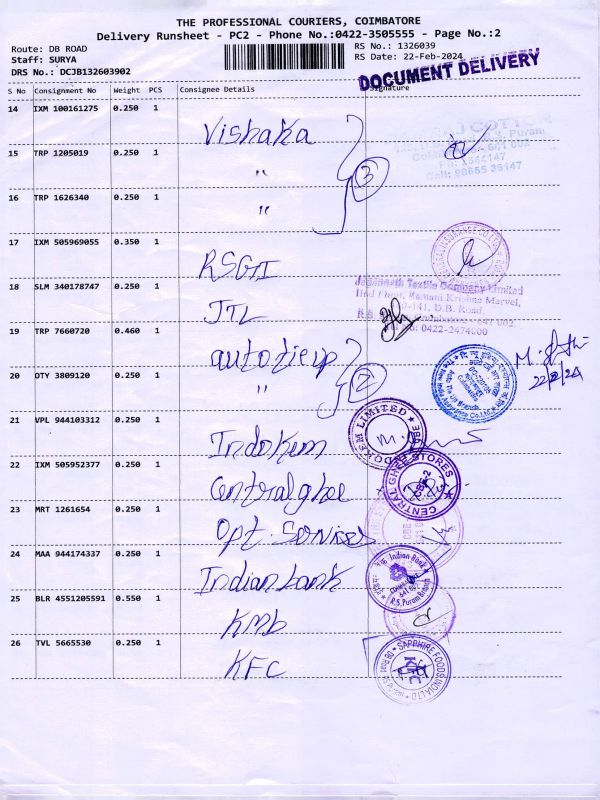 THE PROFESSIONAL COURIERS, COIMBATORE
Delivery Runsheet - PC2 - Phone No.:0422-3505555 - Page No.:2
Route: DB ROAD
RS No.: 1326039
Staff: SURYA
RS Date: 22-Feb-2024
DRS No.: DCJB132603902
DOCUMENT DELIVERY
S No Consignment No Weight PCS Consignee Details Signature
14 IXM 100161275 0.250 1 Vishaka
COTTON
15 TRP 1205019 0.250 1 "
16 TRP 1626340 0.250 1 "
3
17 IXM 505969055 0.350 1 RSGII
18 SLM 340178747 0.250 1 JTL
Jagannath Textile Company Limited
IInd Floor, Ramani Krishna Marvel,
D.B. Road,
0422-2474600
19 TRP 7660720 0.460 1 autotieup
20 OTY 3809120 0.250 1 "
2
22/2/24
21 VPL 944103312 0.250 1 Indokem
INDOKEM LIMITED
22 IXM 505952377 0.250 1 Central ghee
CENTRAL GHEE STORES
CBE-2
23 MRT 1261654 0.250 1 Opt. Services
24 MAA 944174337 0.250 1 Indian bank
Indian Bank
R.S. Puram Branch
25 BLR 4551205591 0.550 1 KMB
26 TVL 5665530 0.250 1 KFC
SAPPHIRE FOODS INDIA LTD
KFC